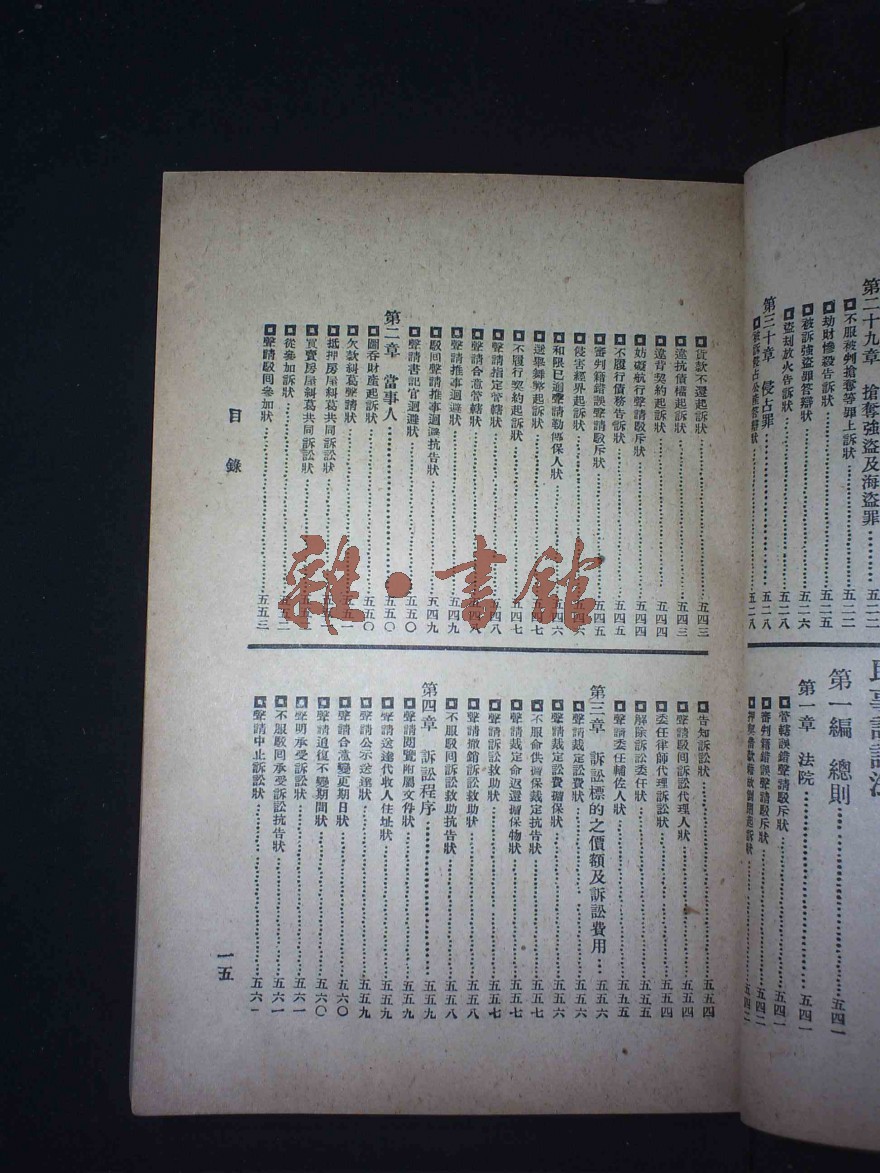 第二十九章 搶奪強盜及海盜罪……五二二
不服被判搶奪等罪上訴狀……五二二
劫財慘殺告訴狀……五二五
被訴強盜罪答辯狀……五二六
盜刦放火告訴狀……五二八
第三十章 侵占罪……五二八
五二八
第一編 總則……五四一
第一章 法院……五四一
管轄誤錯聲請駁斥狀……五四一
審判籍錯誤聲請駁斥狀……五四二
五四二
貨款不還起訴狀……五四三
違抗債權起訴狀……五四三
違背契約起訴狀……五四四
妨礙航行聲請駁斥狀……五四四
不履行債務告訴狀……五四五
審判籍錯誤聲請駁斥狀……五四五
侵害經界起訴狀……五四六
和限已迴聲請勒傳保人狀……五四六
選舉舞弊起訴狀……五四七
不履行契約起訴狀……五四七
聲請指定管轄狀……五四八
聲請合意管轄狀……五四八
聲請推事迴避狀……五四九
駁回聲請推事迴避抗告狀……五四九
聲請書記官迴避狀……五五〇
第二章 當事人……五五〇
圖吞財產起訴狀……五五〇
欠款糾葛聲請狀……五五一
抵押房屋糾葛共同訴訟狀……五五一
買賣房屋糾葛共同訴訟狀……五五
從參加訴狀……五五二
聲請駁回參加狀……五五三
告知訴訟狀……五五四
聲請駁回訴訟代理人狀……五五四
委任律師代理訴訟狀……五五四
解除訴訟委任狀……五五五
聲請委任輔佐人狀……五五五
第三章 訴訟標的之價額及訴訟費用……五五六
聲請裁定訟費狀……五五六
聲請裁定訟費擔保狀……五五六
不服命供擔保裁定抗告狀……五五七
聲請裁定命返還擔保物狀……五五七
聲請訴訟救助狀……五五七
聲請撤銷訴訟救助狀……五五八
不服駁回訴訟救助抗告狀……五五八
第四章 訴訟程序……五五九
聲請閱覽附屬文件狀……五五九
聲請送達代收人住址狀……五五九
聲請公示送達狀……五五九
聲請合意變更期日狀……五六〇
聲請追復不變期間狀……五六〇
聲明承受訴訟狀……五六一
不服駁回承受訴訟抗告狀……五六一
聲請中止訴訟狀……五六一
目錄
一五
雜·書館